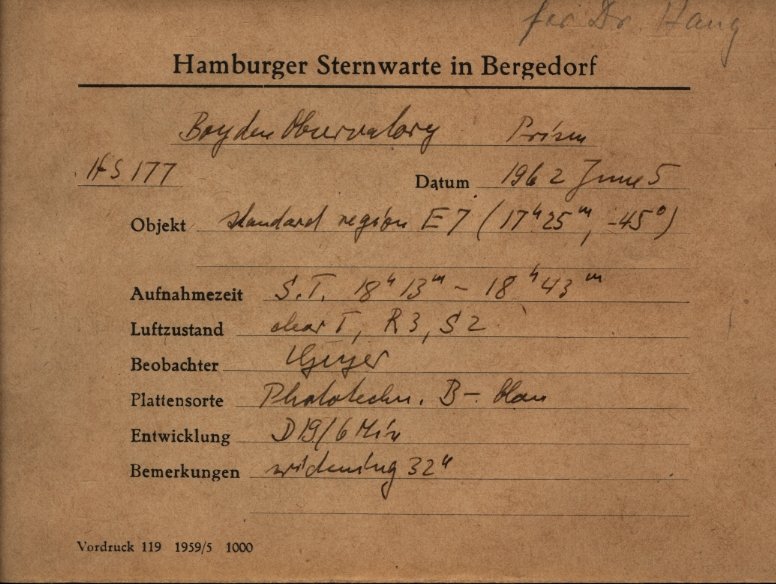 for Dr. Haug
Hamburger Sternwarte in Bergedorf
Boyden Observatory Prism
HS 177 Datum 1962 June 5
Objekt standard region E7 (17ʰ25ᵐ, -45°)
Aufnahmezeit S.T. 18ʰ13ᵐ - 18ʰ43ᵐ
Luftzustand clear T, R3, S2
Beobachter UGeyer
Plattensorte Phototechn. B- blau
Entwicklung D19/6 Min
Bemerkungen widening 32"
Vordruck 119 1959/5 1000